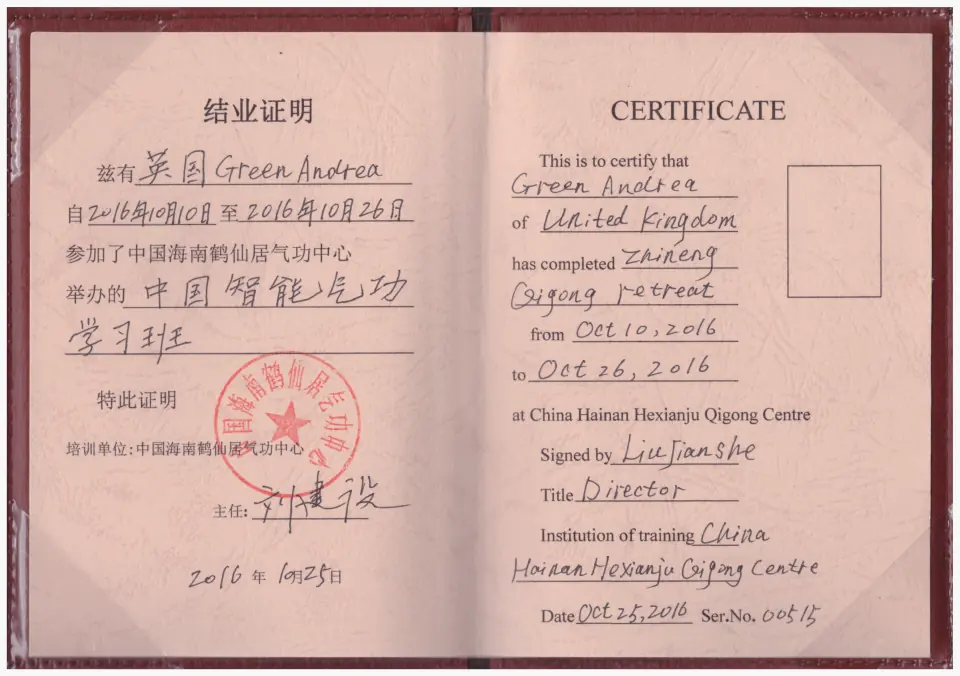 结业证明
兹有 英国 Green Andrea
自2016年10月10日至2016年10月26日
参加了中国海南鹤仙居气功中心
举办的 中国智能气功
学习班
特此证明
中国海南鹤仙居气功中心
培训单位:中国海南鹤仙居气功中心
主任: 刘建设
2016年10月25日
CERTIFICATE
This is to certify that
Green Andrea
of United Kingdom
has completed Zhineng
Qigong retreat
from Oct 10, 2016
to Oct 26, 2016
at China Hainan Hexianju Qigong Centre
Signed by Liu Jianshe
Title Director
Institution of training China
Hainan Hexianju Qigong Centre
Date Oct 25, 2016 Ser.No. 00515